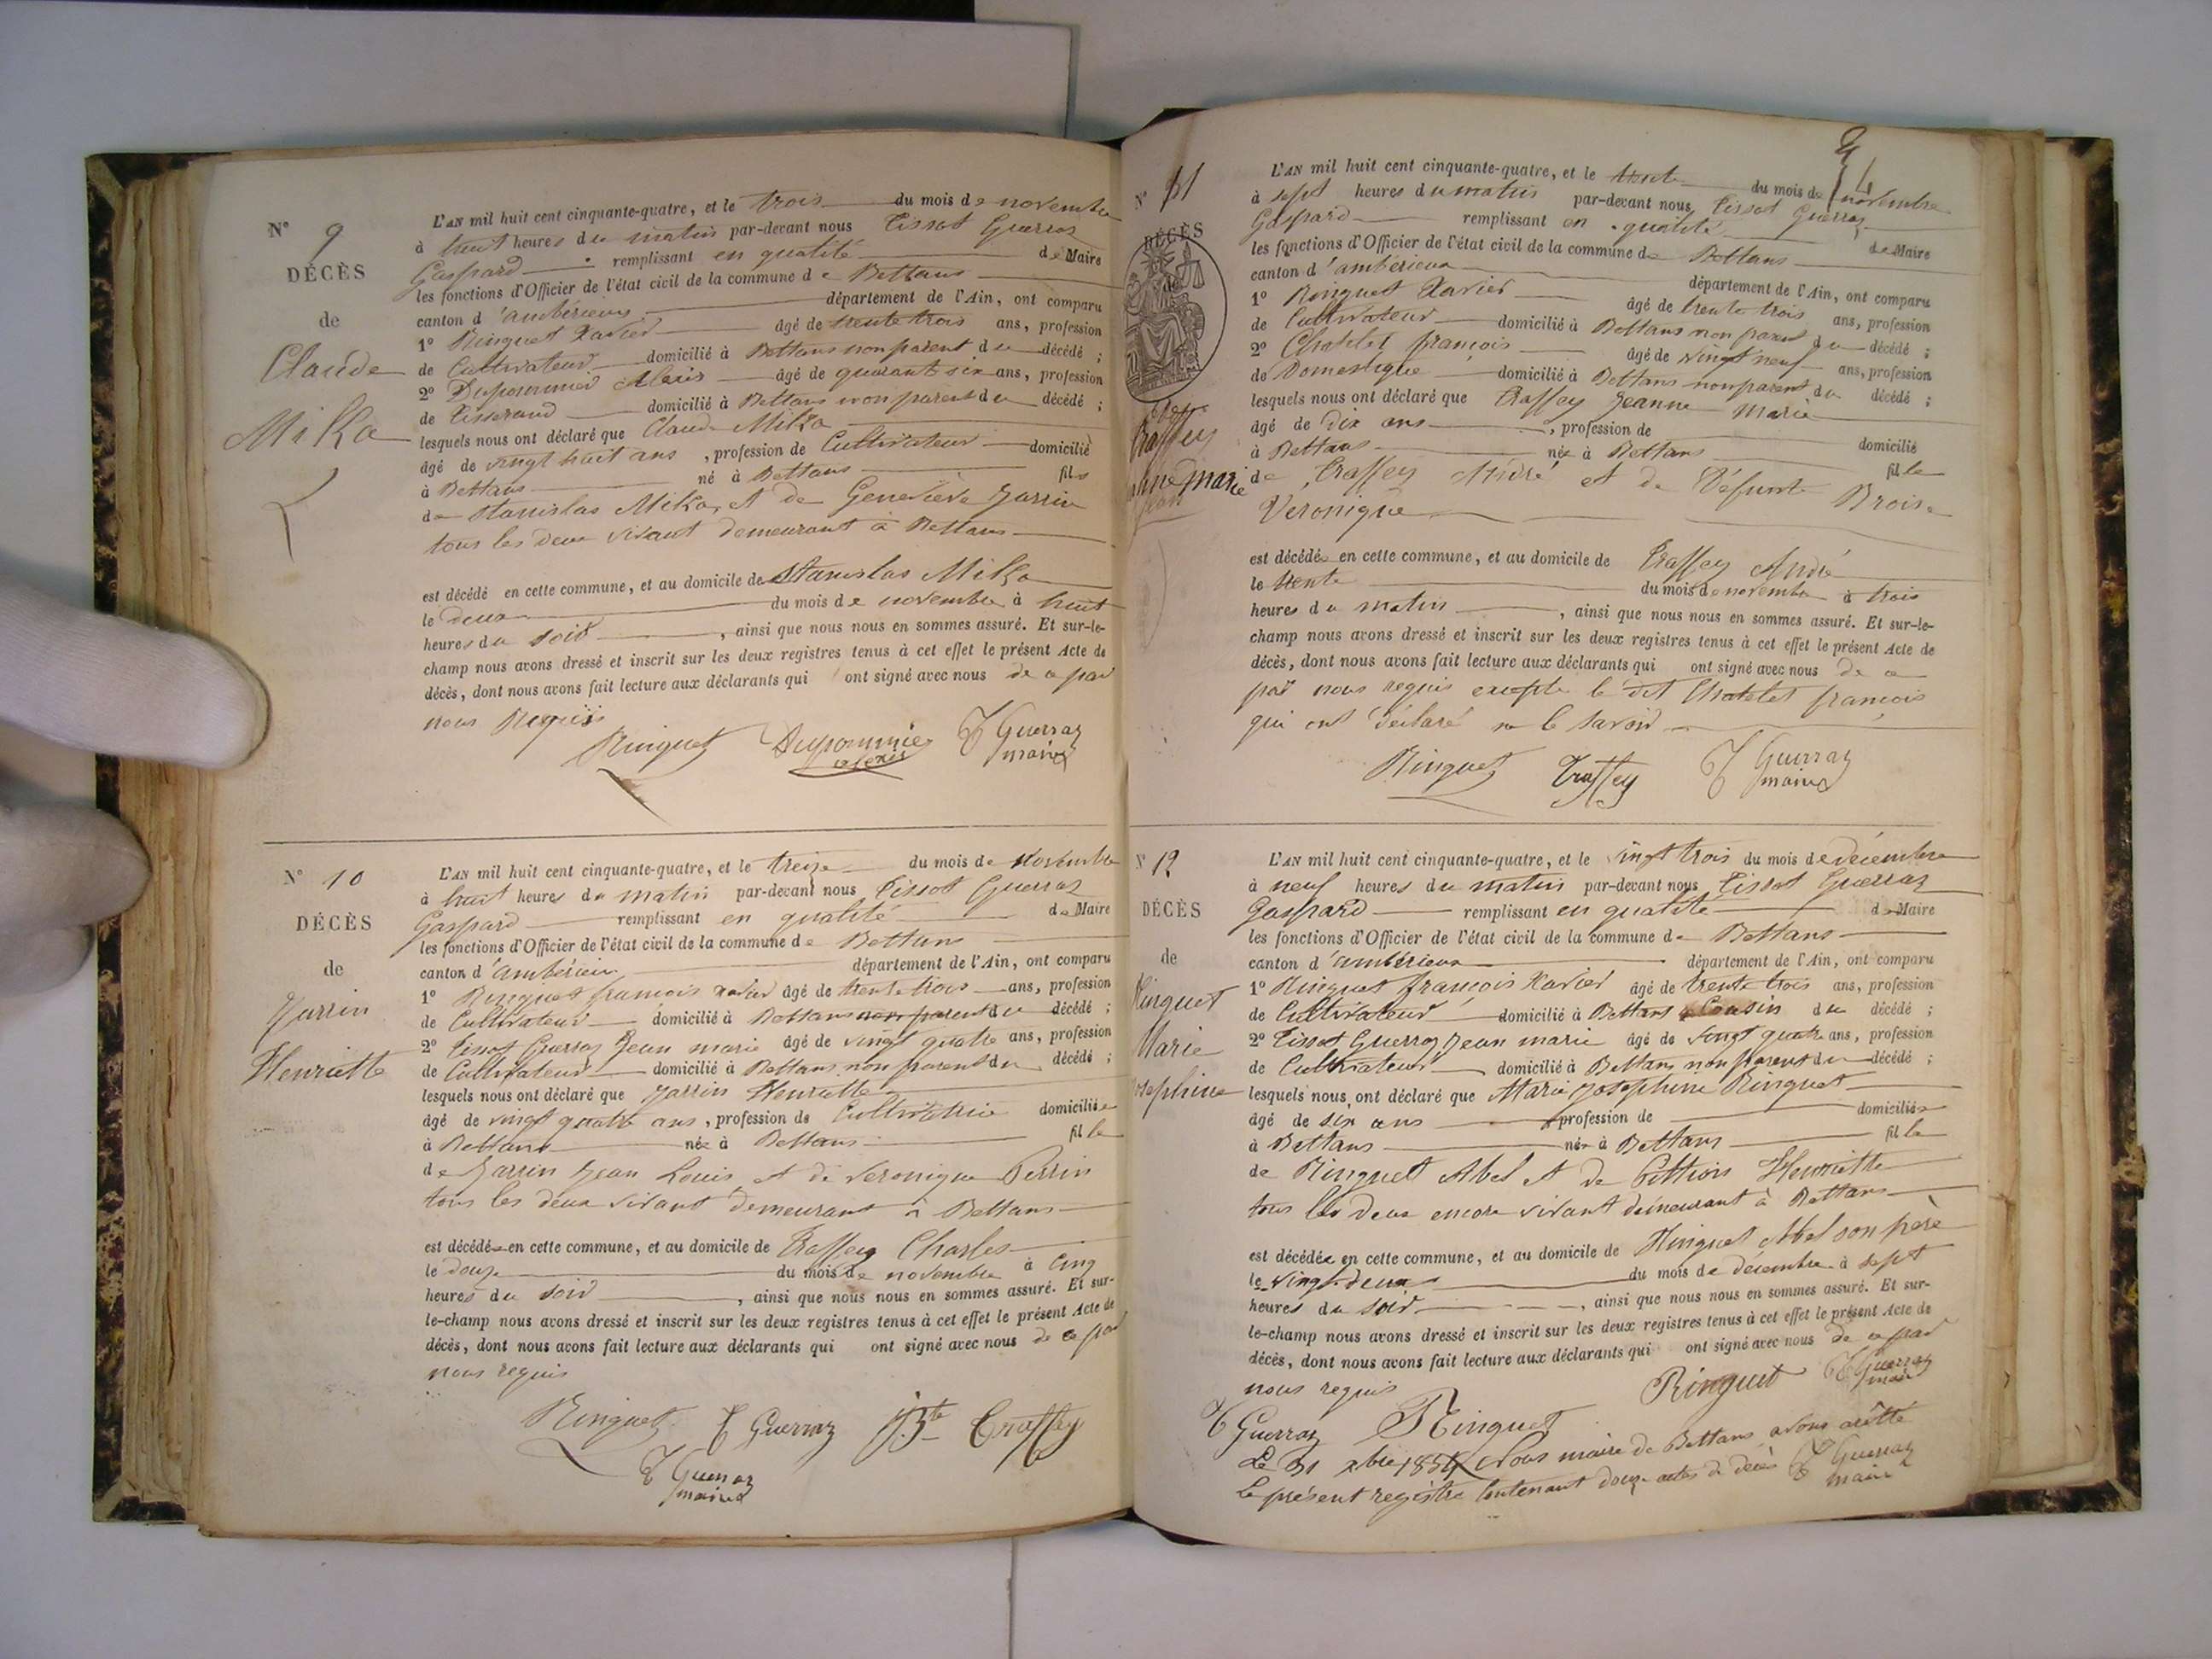 N° 9
DÉCÈS
de
Claude
Milka
L'AN mil huit cent cinquante-quatre, et le trois du mois de novembre
à huit heures du matin par-devant nous Tissot Guerraz
Gaspard remplissant en qualité de Maire
les fonctions d'Officier de l'état civil de la commune de Bettans
canton d'ambérieux département de l'Ain, ont comparu
1° Ringuet Xavier âgé de trente trois ans, profession
de Cultivateur domicilié à Bettans non parent du décédé ;
2° Dupommier Alexis âgé de quarante six ans, profession
de Tisserand domicilié à Bettans non parent du décédé ;
lesquels nous ont déclaré que Claude Milka
âgé de vingt huit ans, profession de Cultivateur domicilié
à Bettans né à Bettans fils
de Stanislas Milka, et de Geneviève Jarrin
tous les deux vivant demeurant à Bettans
est décédé en cette commune, et au domicile de Stanislas Milka
le deux du mois de novembre à huit
heures du soir, ainsi que nous nous en sommes assuré. Et sur-le-
champ nous avons dressé et inscrit sur les deux registres tenus à cet effet le présent Acte de
décès, dont nous avons fait lecture aux déclarants qui ont signé avec nous de ce par
nous Requis
Ringuet Dupommier alexis T Guerraz maire
N° 10
DÉCÈS
de
Jarrin
Henriette
L'AN mil huit cent cinquante-quatre, et le treize du mois de Novembre
à huit heures du matin par-devant nous Tissot Guerraz
Gaspard remplissant en qualité de Maire
les fonctions d'Officier de l'état civil de la commune de Bettans
canton d'ambérieux département de l'Ain, ont comparu
1° Ringuet françois xavier âgé de trente trois ans, profession
de Cultivateur domicilié à Bettans non parent du décédé ;
2° Tissot Guerraz Jean marie âgé de vingt quatre ans, profession
de Cultivateur domicilié à Bettans non parent du décédé ;
lesquels nous ont déclaré que Jarrin Henriette
âgé de vingt quatre ans, profession de Cultivatrice domiciliée
à Bettans née à Bettans fille
de Jarrin Jean Louis et de Veronique Perrin
tous les deux vivant demeurant à Bettans
est décédée en cette commune, et au domicile de Traffey Charles
le douze du mois de novembre à cinq
heures du soir, ainsi que nous nous en sommes assuré. Et sur-
le-champ nous avons dressé et inscrit sur les deux registres tenus à cet effet le présent Acte de
décès, dont nous avons fait lecture aux déclarants qui ont signé avec nous de ce par
nous requis
Ringuet T Guerraz Traffey
T Guerraz
maire
N° 11
DÉCÈS
Traffey
marie
L'AN mil huit cent cinquante-quatre, et le trente du mois de novembre
à sept heures du matin par-devant nous Tissot Guerraz
Gaspard remplissant en qualité de Maire
les fonctions d'Officier de l'état civil de la commune de Bettans
canton d'ambérieux département de l'Ain, ont comparu
1° Ringuet Xavier âgé de trente trois ans, profession
de Cultivateur domicilié à Bettans non parent du décédé ;
2° Chatelet françois âgé de vingt neuf ans, profession
de Domestique domicilié à Bettans non parent du décédé ;
lesquels nous ont déclaré que Traffey Jeanne Marie
âgé de dix ans, profession de domicilié
à Bettans née à Bettans fille
de Traffey André et de Défunte Broise
Veronique
est décédée en cette commune, et au domicile de Traffey André
le trente du mois de novembre à trois
heures du matin, ainsi que nous nous en sommes assuré. Et sur-le-
champ nous avons dressé et inscrit sur les deux registres tenus à cet effet le présent Acte de
décès, dont nous avons fait lecture aux déclarants qui ont signé avec nous de ce
par nous requis excepté le dit Chatelet françois
qui ont déclaré ne le savoir
Ringuet Traffey T Guerraz maire
N° 12
DÉCÈS
de
Ringuet
Marie
osephine
L'AN mil huit cent cinquante-quatre, et le vingt trois du mois de décembre
à neuf heures du matin par-devant nous Tissot Guerraz
Gaspard remplissant en qualité de Maire
les fonctions d'Officier de l'état civil de la commune de Bettans
canton d'ambérieux département de l'Ain, ont comparu
1° Ringuet françois Xavier âgé de trente trois ans, profession
de Cultivateur domicilié à Bettans Cousin du décédé ;
2° Tissot Guerraz Jean marie âgé de vingt quatre ans, profession
de Cultivateur domicilié à Bettans non parent du décédé ;
lesquels nous ont déclaré que Marie Josephine Ringuet
âgé de six ans profession de domiciliée
à Bettans née à Bettans fille
de Ringuet Abel et de Pittion Henriette
tous les deux encore vivant demeurant à Bettans
est décédée en cette commune, et au domicile de Ringuet Abel son père
le vingt-deux du mois de décembre à sept
heures du soir, ainsi que nous nous en sommes assuré. Et sur-
le-champ nous avons dressé et inscrit sur les deux registres tenus à cet effet le présent Acte de
décès, dont nous avons fait lecture aux déclarants qui ont signé avec nous de ce par
nous requis Ringuet T Guerraz maire
T Guerraz Ringuet
Le 31 xbre 1854 Nous maire de Bettans avons arêtté
Le présent registre Contenant douze actes de décès T Guerraz maire